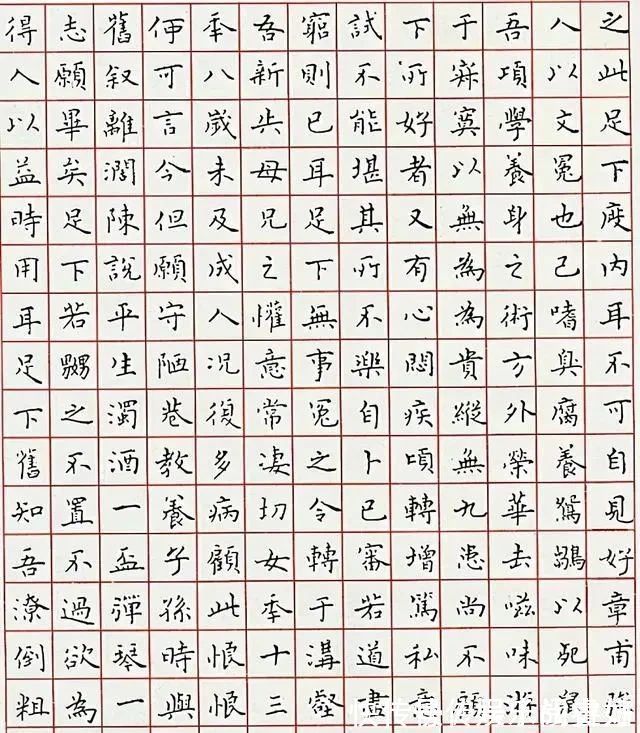 之此足下度内耳不可自見好章甫
人以文冕也己嗜臭腐養鴛鶵以死鼠
吾項學養身之術方外榮華去滋味
于寂寞以無為為貴縱無九患尚不顧
下所好者又有心悶疾頃轉增篤私意
試不能堪其所不樂自卜已審若道盡
窮則已耳足下無事冤之令轉于溝壑
吾新失母兄之懽意常凄切女年十三
年八歲未及成人況復多病顧此悢悢
何可言今但願守陋巷教養子孫時與
舊叙離濶陳說平生濁酒一盃彈琴一
志願畢矣足下若嬲之不置不過欲為
得人以益時用耳足下舊知吾潦倒粗